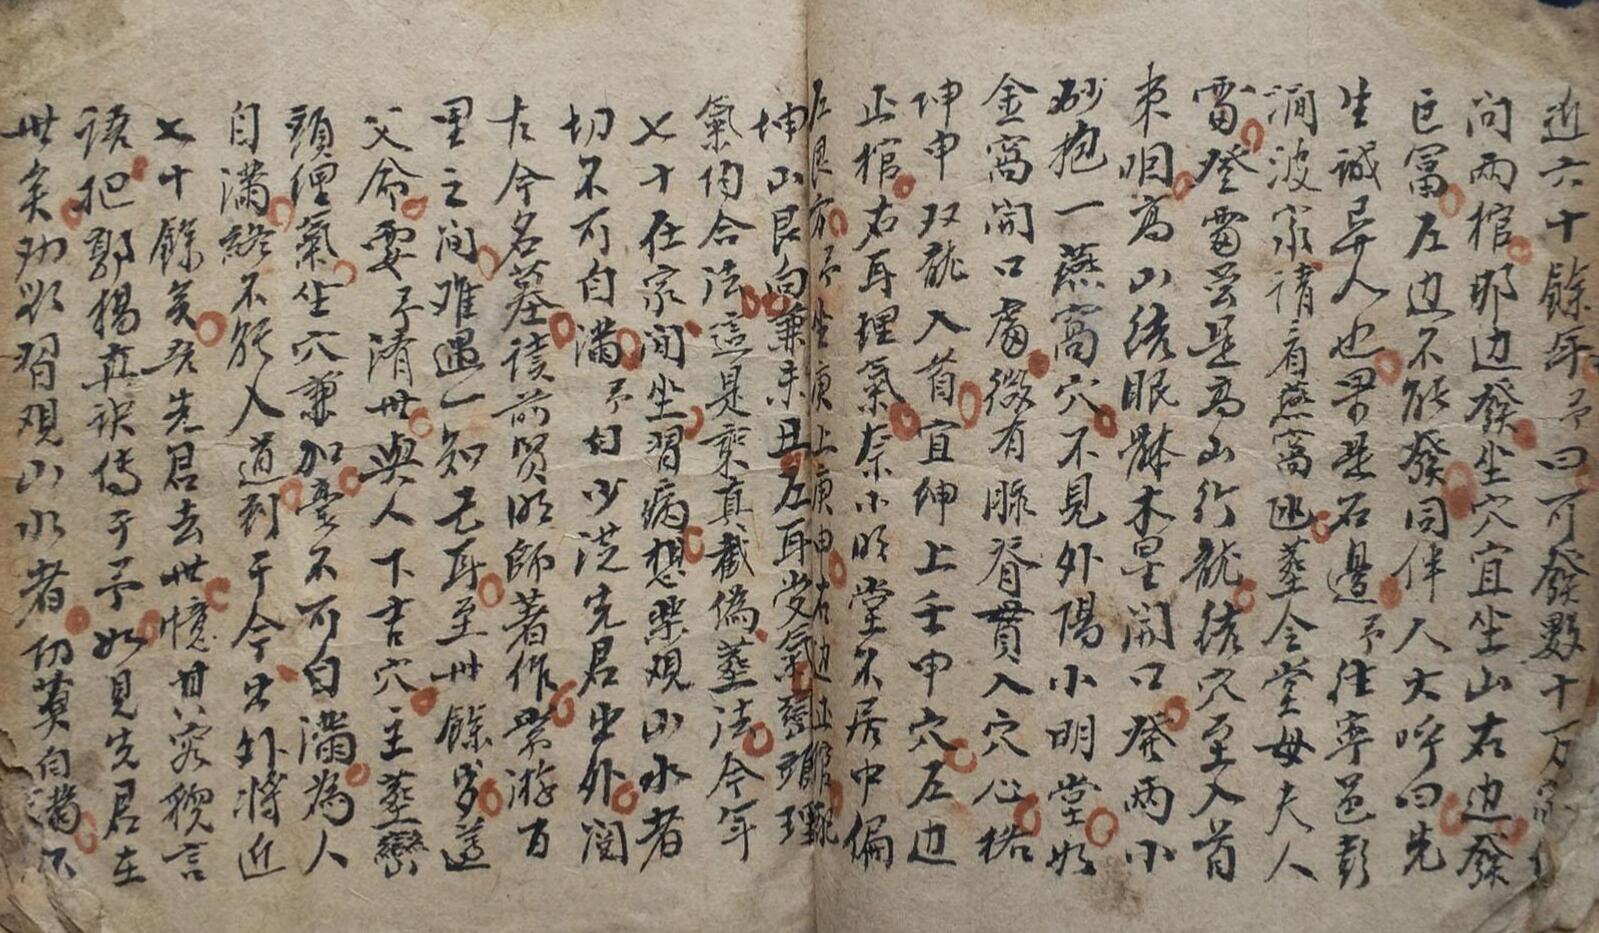 近六十餘年予曰可發數十万
问兩棺那边發坐穴宜坐山右边發
巨富左边不能發同伴人大呼曰先
生诚异人也果是右邊予往寧邑彭
澗波家请看燕窩逃葬令堂母夫人
雷發雷公是高山行龍结穴至入首
束咽高山结眠躰木星開口發兩小
砂抱一燕窩穴不見外陽小明堂如
金窩開口處微有脈脊貫入穴心
坤申双龍入首宜坤上壬甲穴左边
正棺右耳理氣奈小明堂不居中偏
左艮方予坐庚上庚申右边正
坤山艮向兼未丑左耳受氣巒頭理
氣俱合法這是乘真截偽葬法今年
七十在家闲坐習病想樂观山水者
切不可自滿予自少從先君出外閱
古今名墓读前贤明師著作常游百
里之间难遇一知己耳至卅餘岁遵
父命要予濟世與人下吉穴主葬巒
頭俚氣坐穴兼加毫不可自滿為人
自滿終不能入道到于今出外將近
七十餘矣吾先君去世憶其容貌言
语把郭楊真诀傳于予如見先君在
世矣切欲習观山水者切莫自滿不